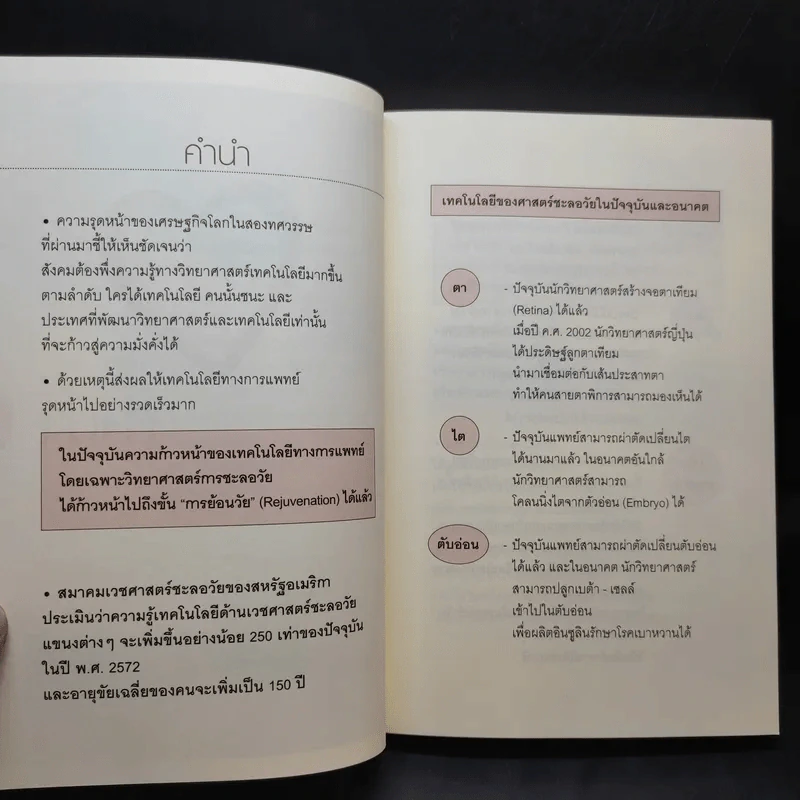 คำนำ
• ความรุดหน้าของเศรษฐกิจโลกในสองทศวรรษ
ที่ผ่านมาชี้ให้เห็นชัดเจนว่า
สังคมต้องพึ่งความรู้ทางวิทยาศาสตร์เทคโนโลยีมากขึ้น
ตามลำดับ ใครได้เทคโนโลยี คนนั้นชนะ และ
ประเทศที่พัฒนาวิทยาศาสตร์และเทคโนโลยีเท่านั้น
ที่จะก้าวสู่ความมั่งคั่งได้
• ด้วยเหตุนี้ส่งผลให้เทคโนโลยีทางการแพทย์
รุดหน้าไปอย่างรวดเร็วมาก
ในปัจจุบันความก้าวหน้าของเทคโนโลยีทางการแพทย์
โดยเฉพาะวิทยาศาสตร์การชะลอวัย
ได้ก้าวหน้าไปถึงขั้น "การย้อนวัย" (Rejuvenation) ได้แล้ว
• สมาคมเวชศาสตร์ชะลอวัยของสหรัฐอเมริกา
ประเมินว่าความรู้เทคโนโลยีด้านเวชศาสตร์ชะลอวัย
แขนงต่างๆ จะเพิ่มขึ้นอย่างน้อย 250 เท่าของปัจจุบัน
ในปี พ.ศ. 2572
และอายุขัยเฉลี่ยของคนจะเพิ่มเป็น 150 ปี
เทคโนโลยีของศาสตร์ชะลอวัยในปัจจุบันและอนาคต
ตา
- ปัจจุบันนักวิทยาศาสตร์สร้างจอตาเทียม
(Retina) ได้แล้ว
เมื่อปี ค.ศ. 2002 นักวิทยาศาสตร์ญี่ปุ่น
ได้ประดิษฐ์ลูกตาเทียม
นำมาเชื่อมต่อกับเส้นประสาทตา
ทำให้คนสายตาพิการสามารถมองเห็นได้
ไต
- ปัจจุบันแพทย์สามารถผ่าตัดเปลี่ยนไต
ได้นานมาแล้ว ในอนาคตอันใกล้
นักวิทยาศาสตร์สามารถ
โคลนนิ่งไตจากตัวอ่อน (Embryo) ได้
ตับอ่อน
- ปัจจุบันแพทย์สามารถผ่าตัดเปลี่ยนตับอ่อน
ได้แล้ว และในอนาคต นักวิทยาศาสตร์
สามารถปลูกเบต้า - เซลล์
เข้าไปในตับอ่อน
เพื่อผลิตอินซูลินรักษาโรคเบาหวานได้